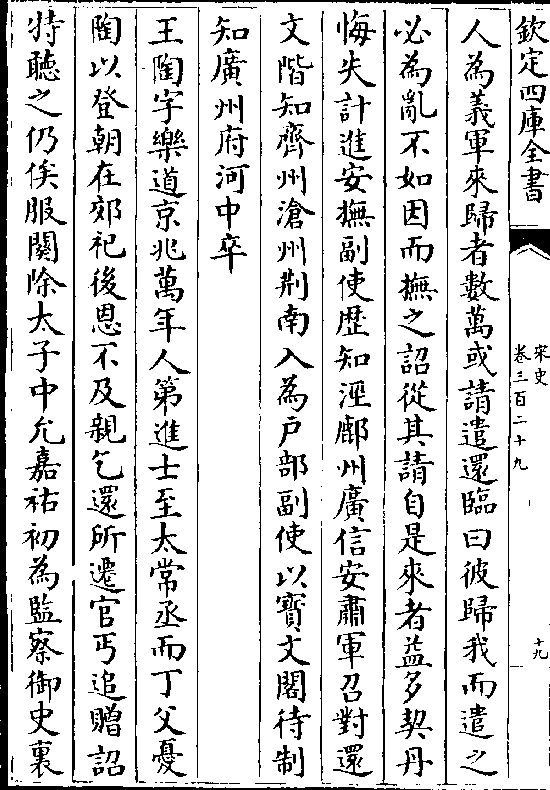 欽定四庫全書
宋史
卷三百二十九
十九
人為義軍來歸者數萬或請遣還臨曰彼歸我而遣之
必為亂不如因而撫之詔從其請自是來者益多契丹
悔失計進安撫副使歴知涇鄜州廣信安肅軍召對還
文階知齊州滄州荆南入為戶部副使以寶文閣待制
知廣州府河中卒
王陶字樂道京兆萬年人第進士至太常丞而丁父憂
陶以登朝在郊祀後恩不及親乞還所遷官丐追贈詔
特聽之仍俟服闋除太子中允嘉祐初為監察御史裏